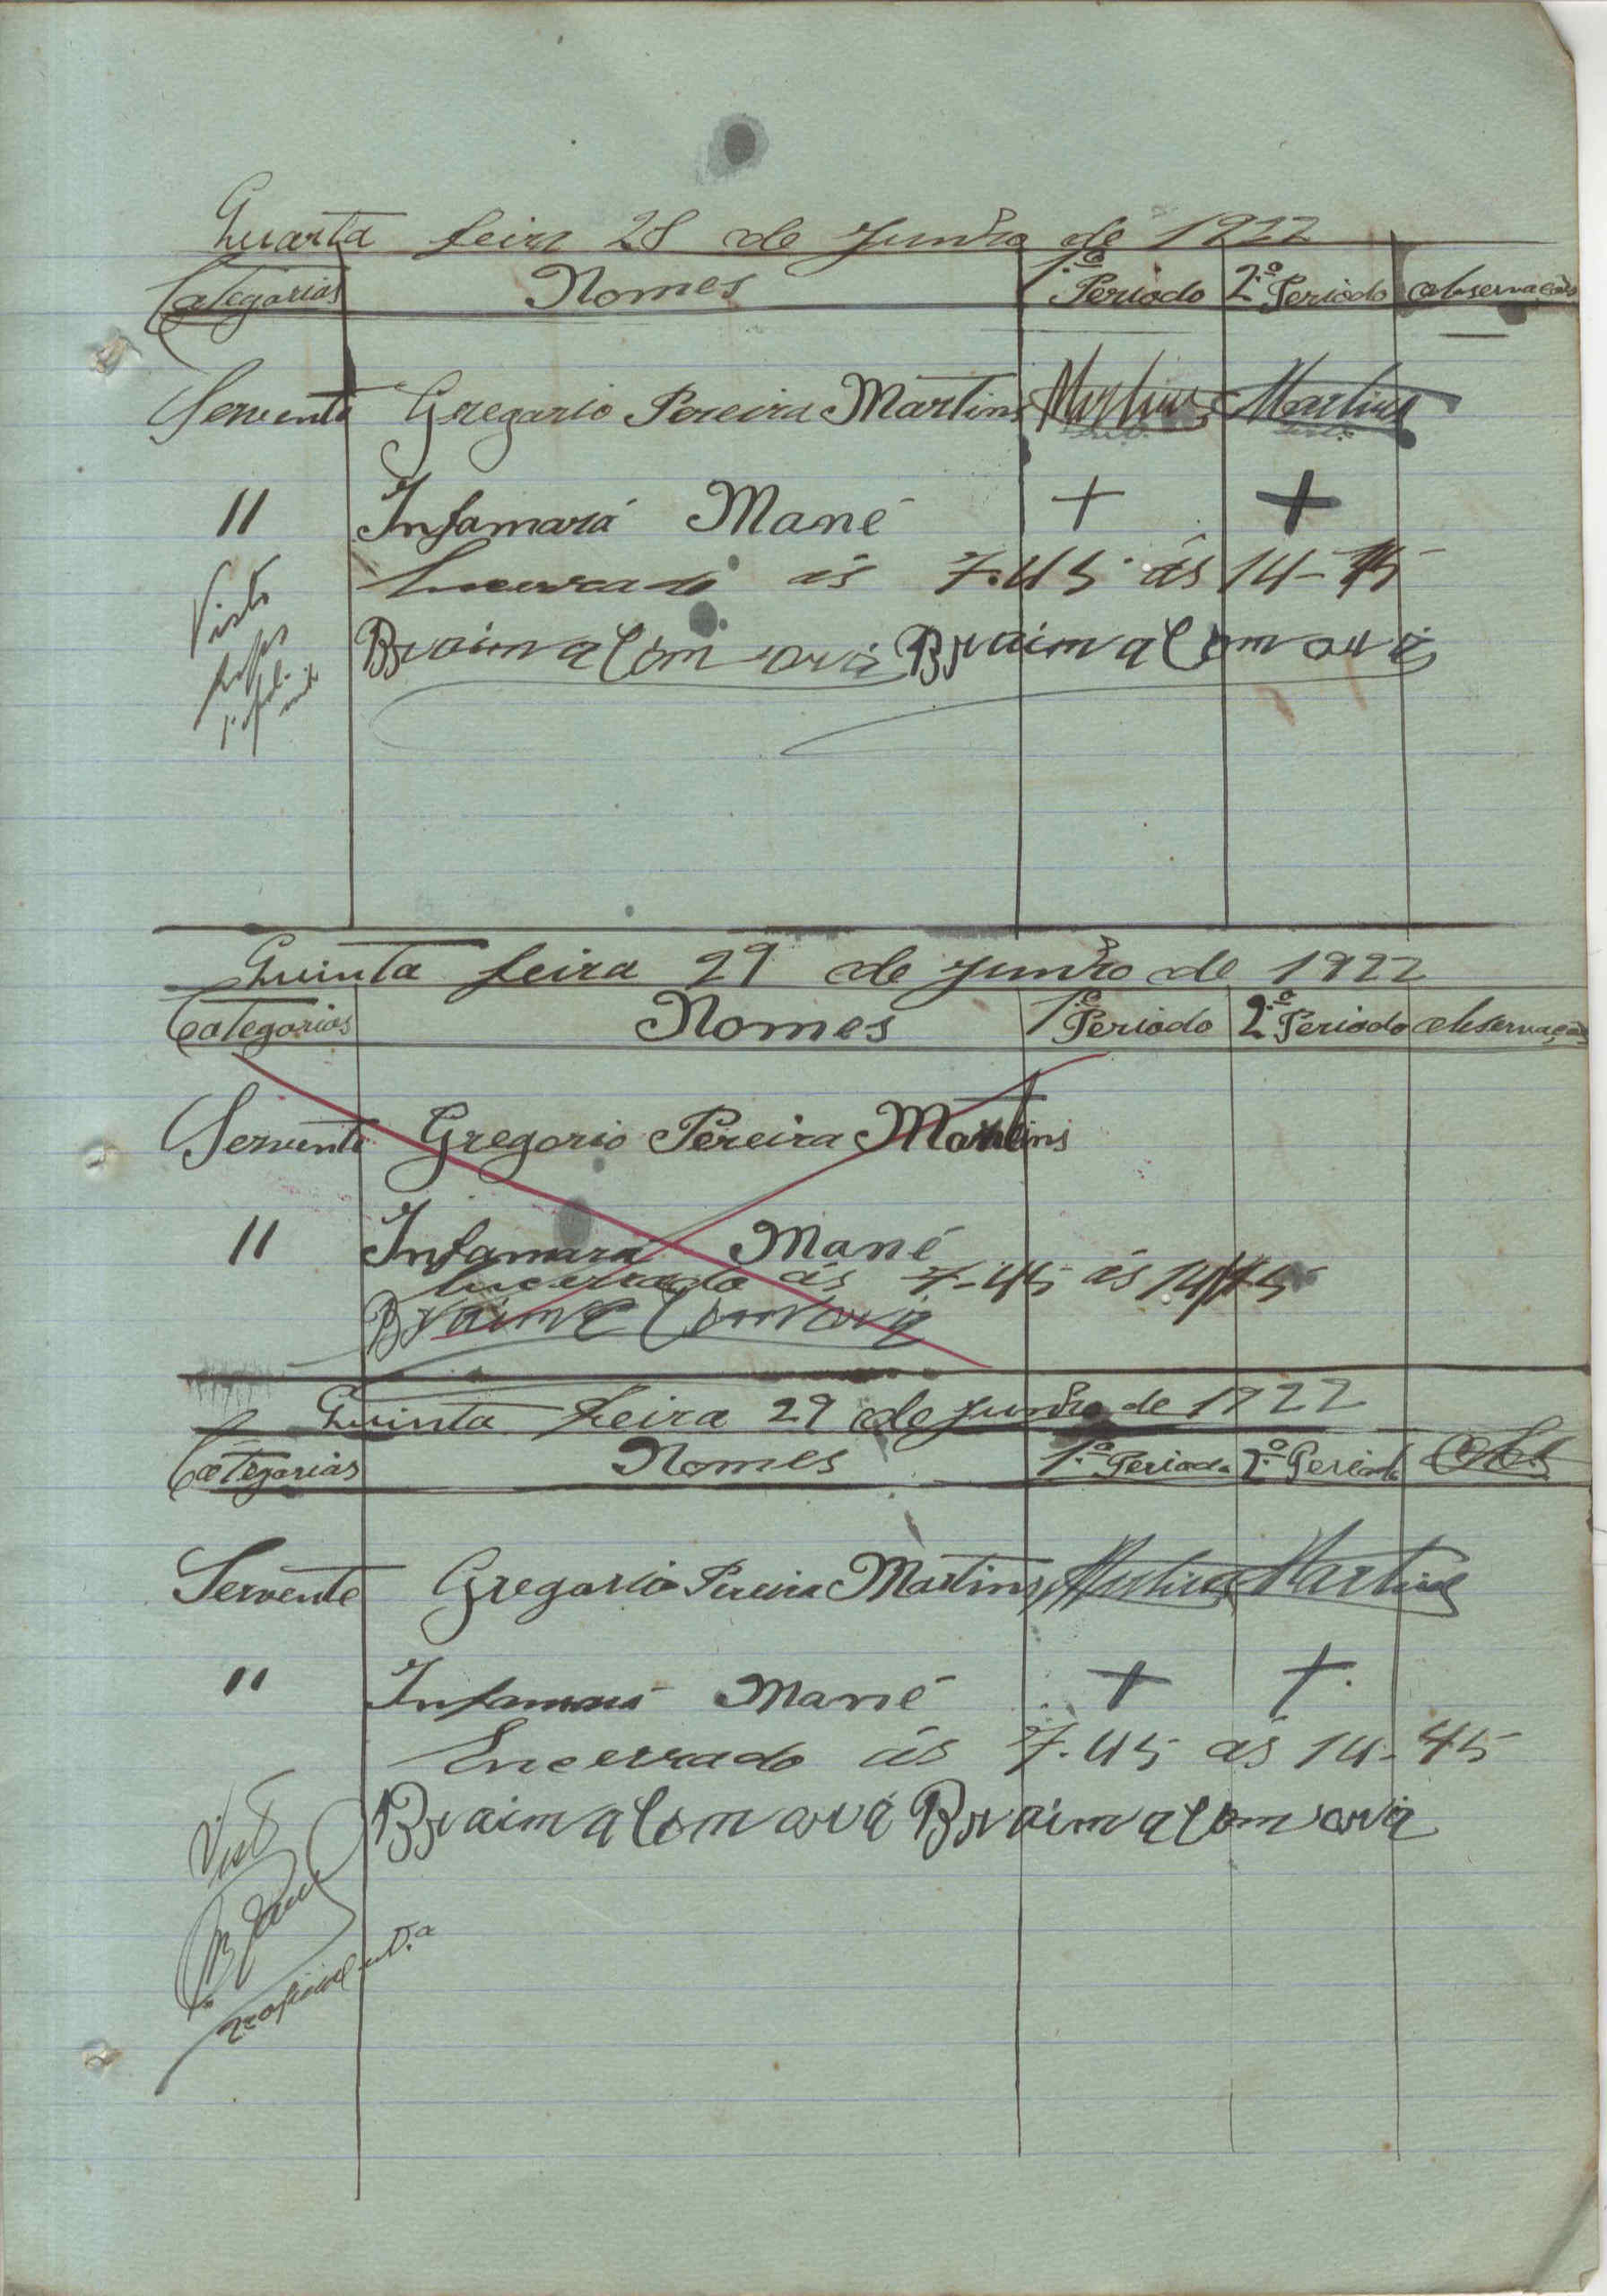 Quarta feira 28 de Junho de 1922
Categorias Nomes 1.º Periodo 2.º Periodo observações
Servente Gregorio Pereira Martins Martins Martins
" Infamará Mané + +
Encerrado ás 7.45 ás 14-45
Visto
Braima Camará Braima Camará
Quinta feira 29 de Junho de 1922
Categorias Nomes 1.º Periodo 2.º Periodo observações
Servente Gregorio Pereira Martins
" Infamará Mané
Encerrado ás 7-45 ás 14-45
Braima Camará
Quinta feira 29 de Junho de 1922
Categorias Nomes 1.º Periodo 2.º Periodo Obs
Servente Gregorio Pereira Martins Martins Martins
" Infamará Mané + +
Encerrado ás 7.45 ás 14-45
Braima Camará Braima Camará
Visto